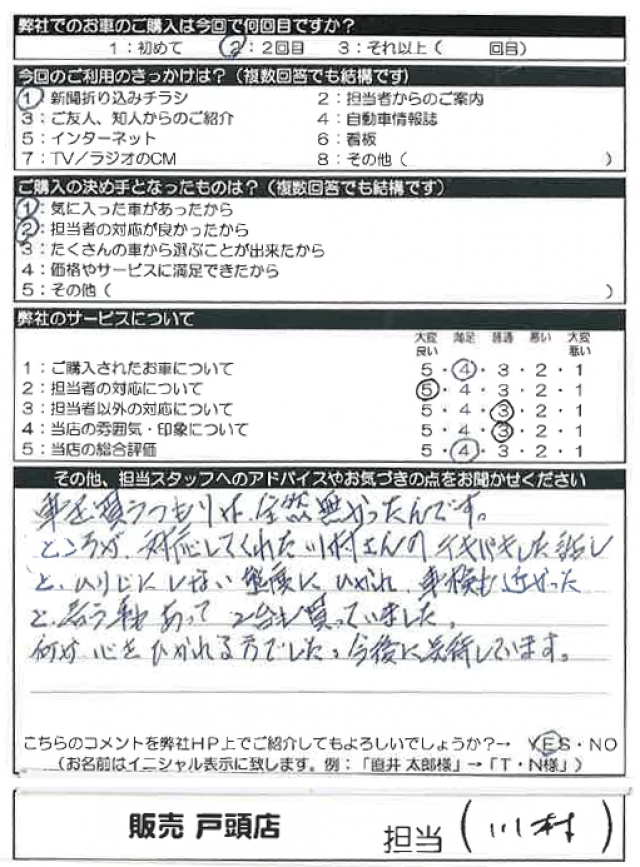 弊社でのお車のご購入は今回で何回目ですか？
1：初めて 2：2回目 3：それ以上（ 回目）
今回のご利用のきっかけは？（複数回答でも結構です）
1：新聞折り込みチラシ 2：担当者からのご案内
3：ご友人、知人からのご紹介 4：自動車情報誌
5：インターネット 6：看板
7：TV／ラジオのCM 8：その他（ ）
ご購入の決め手となったものは？（複数回答でも結構です）
1：気に入った車があったから
2：担当者の対応が良かったから
3：たくさんの車から選ぶことが出来たから
4：価格やサービスに満足できたから
5：その他（ ）
弊社のサービスについて
大変良い 満足 普通 悪い 大変悪い
1：ご購入されたお車について 5・4・3・2・1
2：担当者の対応について 5・4・3・2・1
3：担当者以外の対応について 5・4・3・2・1
4：当店の雰囲気・印象について 5・4・3・2・1
5：当店の総合評価 5・4・3・2・1
その他、担当スタッフへのアドバイスやお気づきの点をお聞かせください
車を買うつもりは、全然無かったんです。
ところが、対応してくれた川村さんのテキパキした話し
と、態度にひかれ、車検も近かった
と、思う事あって2台も買っていました。
何か心をひかれる方でした。今後に期待しています。
こちらのコメントを弊社HP上でご紹介してもよろしいでしょうか？→ YES・NO
（お名前はイニシャル表示に致します。例：「直井 太郎様」→「T・N様」）
販売 戸頭店 担当（川村）